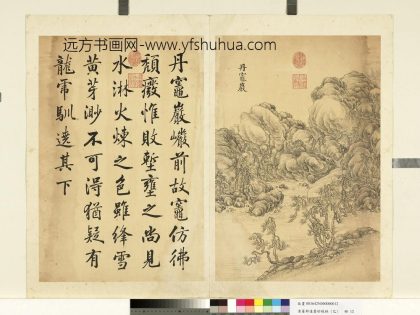 远方书画网-www.yfshuhua.com
丹竈巖
丹竈巖巖前故竈仿彿
頹廢惟敗塹壅之尚見
水湫火煉之色雖絳雪
黃芽渺不可得猶疑有
龍虎馴遶其下